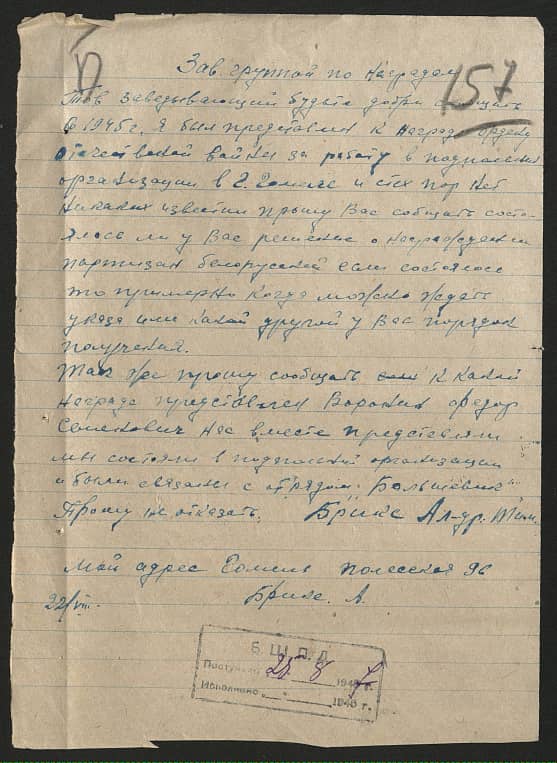 157
Зав. группой по Наградам
Тов Заведывающий будьте добры сообщать
В 1945 г. Я был представлен к награде ордену
отечественой вайны за работу в подпольной
организации в г. Гомеле и с тех пор нет
никаких известии прошу Вас собщать состо-
ялось ли у Вас решение о награждении
партизан белоруссией если состоялось
то примерно когда можно ждать
указа или какой другой у Вас порядок
получения.
Так же прошу сообщать к какой
награде представлен Воронин федор
Семенович нас вместе представляли
мы состояли в подпольной организации
и были связаны с отрядом "Большевик"
Прошу не отказать. Брикс Ал-др.
Мой адрес Гомель Полесская 96
22/VIII. Брикс. А.
Б. Ш. П. Д.
Поступило 25 8 194 г.
Исполнено 194 г.